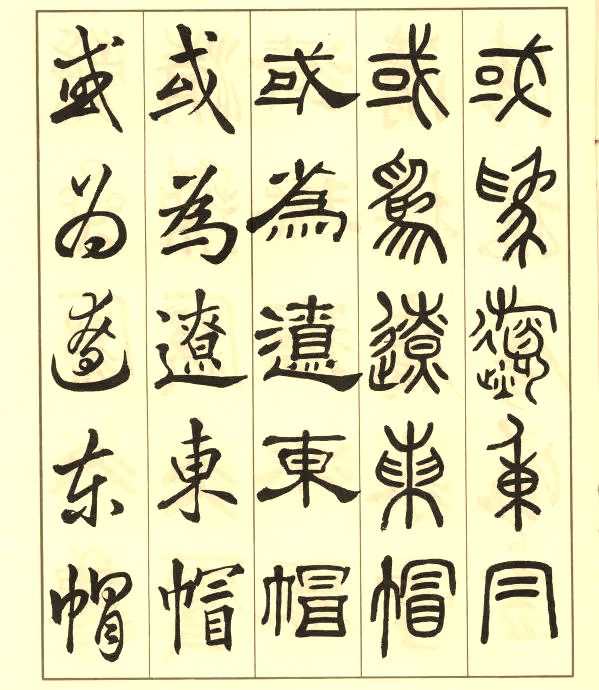 或為遼東帽
或為遼東帽
或為遼東帽
或為遼東帽
或為遼東帽